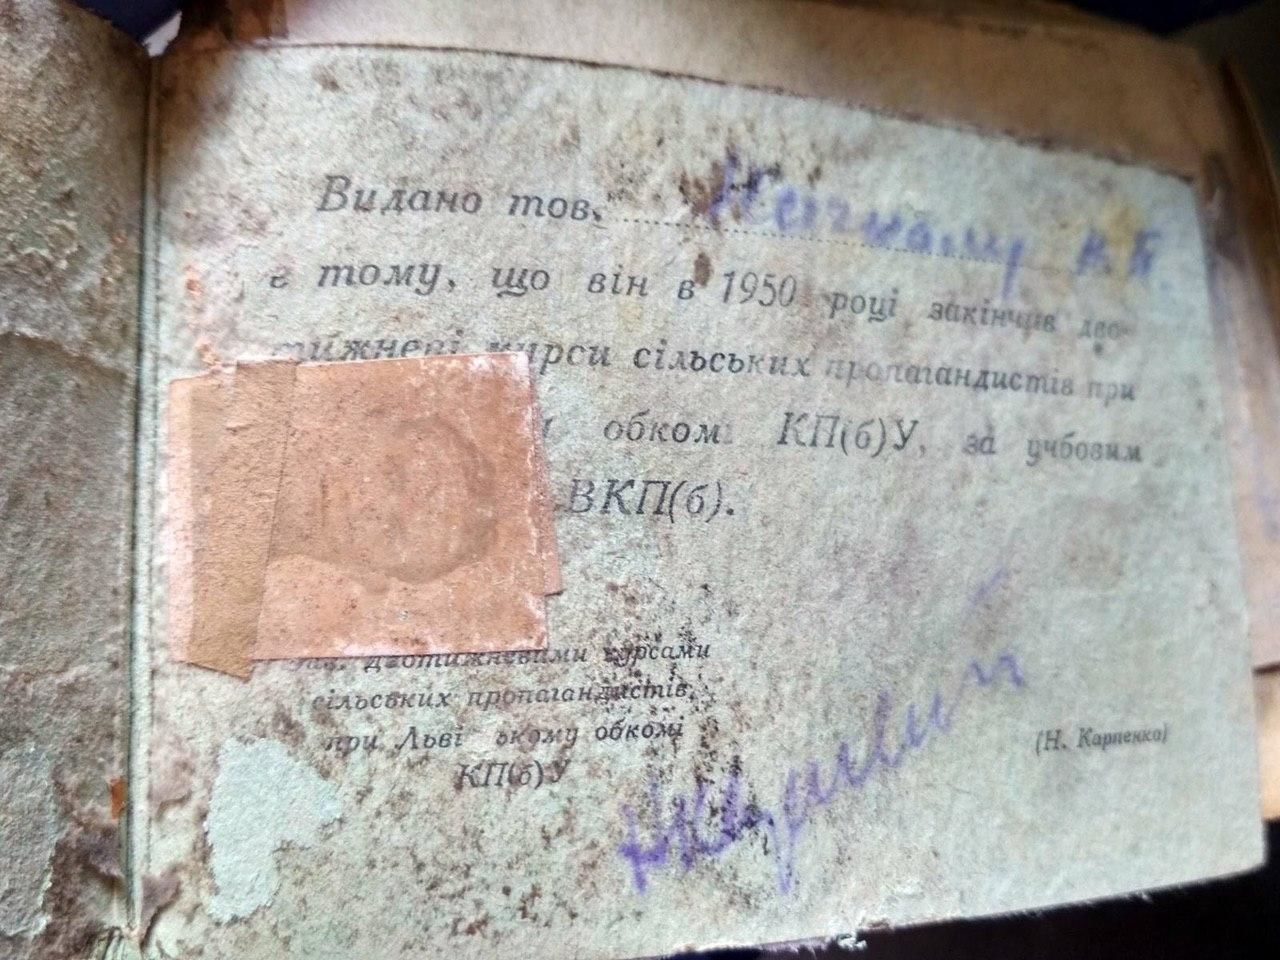 Видано тов.
в тому, що він в 1950 році закінчив дво-
тижневі курси сільських пропагандистів при
обкомі КП(б)У, за учбовим
ВКП(б).
Зав. двотижневими курсами
сільських пропагандистів
при Льві ському обкомі
КП(б)У
(Н. Карпенко)